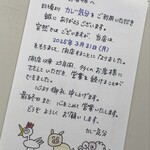 お客様へ
日頃より カレー気分を ご利用いただき
誠に ありがとう ございます。
突然では ございますが、当店は
2025年3月31日(月)
をもちまして、閉店することになりました。
閉店以来 25年間、多くの お客様に
支えて いただき、営業を 続けることが
できました。
心より 御礼 申し上げます。
最終日まで 心をこめて 営業いたします。
どうぞ よろしく お願いします。
カレー気分